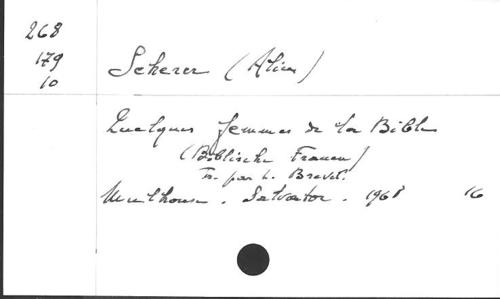 268
179
10
Scherer (Alice)
Quelques femmes de la Bible
(Biblische Frauen)
Tr. par L. Brevet.
Mulhouse. Salvator. 1968 16